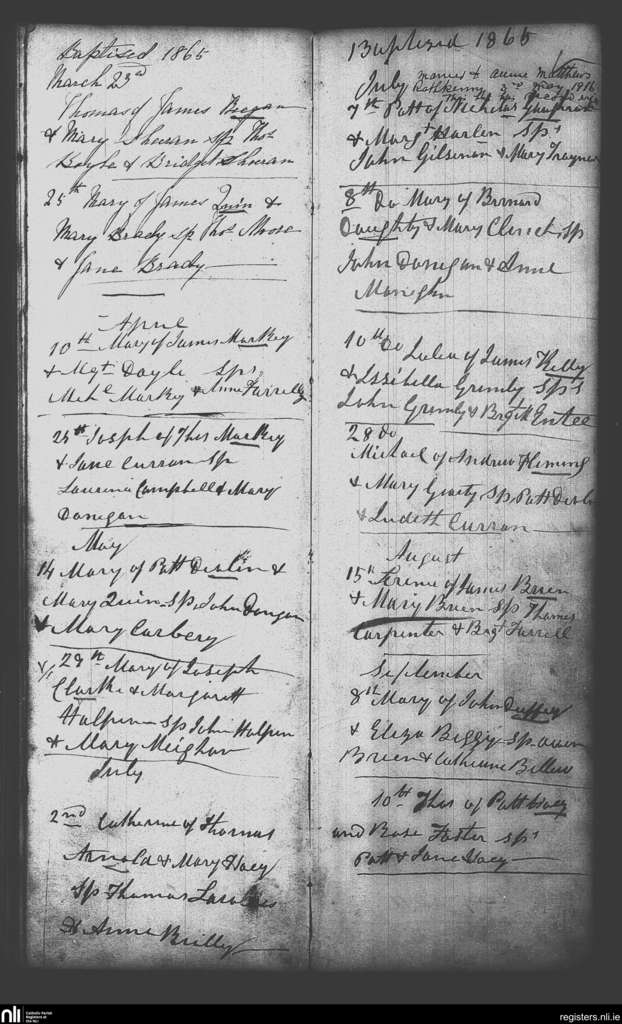 Baptised 1865
March 23rd
Thomas of James Keegan
& Mary Sheeran sps Thos
Boyle & Bridget Sheeran
25th Mary of James Quin &
Mary Brady Sp Thos Moore
& Jane Brady
April
10th Mary of James Markey
& Mgt Doyle Sps
Mchl Markey & Anne Farrelly
25th Joseph of Thos Markey
& Jane Curran Sp
Campbell & Mary
Donegan
May
14 Mary of Patt Devlin &
Mary Quin Sp, John Dongan
& Mary Carbery
29th Mary of Joseph
Clarke & Margarett
Halpin sp John Halpin
& Mary Meighan
July
2nd Catherine of Thomas
Arnold & Mary Hoey
Sp Thomas
& Anne Brilly
Baptised 1865
July married & Annie Matthews
Rathkenny 3rd May 1916
7th Patt of Nicholas
& Margt Harlen Sps
John Gilsenan & Mary Traynor
8th Do Mary of Bernard
Daughty & Mary Sp
John Donegan & Anne
Moneghan
10th Do of James Kelly
& Issibella Grimly Sps
John Grimly & Bragt McEntee
28 Do
Michael of Andrew Fleming
& Mary Geraty Sp, Patt Devlin
& Judeth Curran
August
15th Terence of James Brien
& Mary Brien Sp Thomas
Carpenter & Brgt Farrell
September
8th Mary of John Duffey
& Eliza Beggy Sp owen
Brien & Catherine Bellew
10th Thos of Patt Hoey
and Rose Foster sps
Patt & Jane Hoey
nli
Catholic Parish
Registers at
the NLI
registers.nli.ie